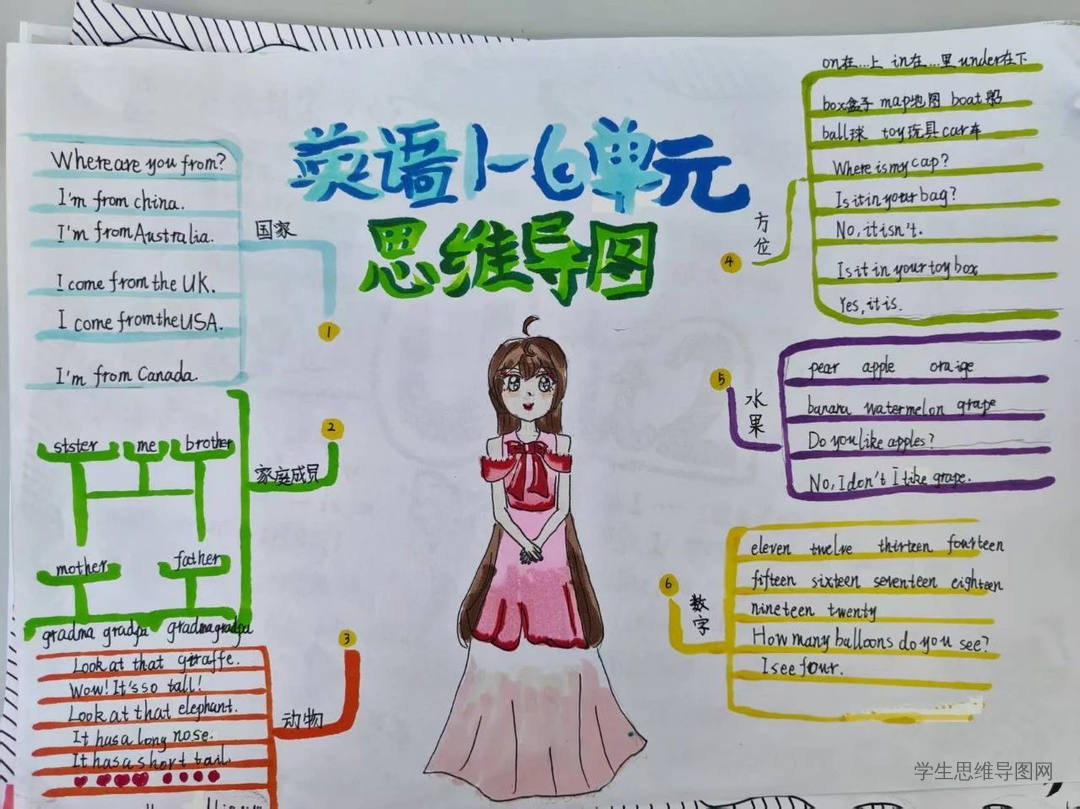 英语1-6单元
思维导图
1
国家
Where are you from?
I'm from china.
I'm from Australia.
I come from the UK.
I come from the USA.
I'm from Canada.
2
家庭成员
sister me brother
mother father
gradma gradpa gradma gradpa
3
动物
Look at that giraffe.
Wow! It's so tall!
Look at that elephant.
It has a long nose.
It has a short tail.
4
方位
on在…上 in在…里 under在下
box盒子 map地图 boat船
ball球 toy玩具 car车
Where is my cap?
Is it in your bag?
No, it isn't.
Is it in your toy box
Yes, it is.
5
水果
pear apple oraige
banana watermelon grape
Do you like apples?
No, I don't I like grape.
6
数字
eleven twelve thirteen fourteen
fifteen sixteen seventeen eighteen
nineteen twenty
How many balloons do you see?
I see four.
学生思维导图网